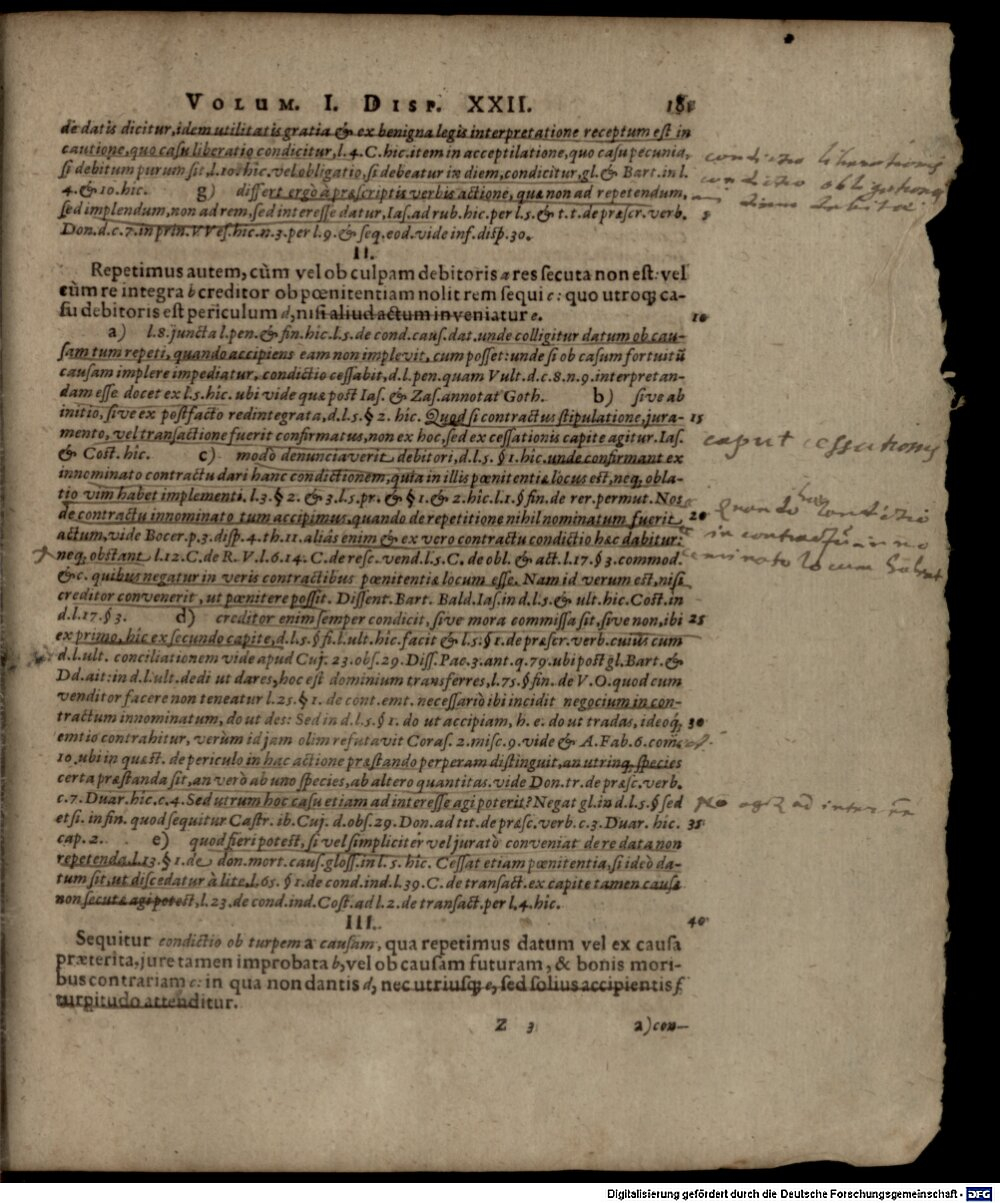 VOLUM. I. DISP. XXII. 181
de datis dicitur, idem utilitatis gratia & ex benigna legis interpretatione receptum est in
cautione, quo casu liberatio condicitur, l. 4. C. hic. item in acceptilatione, quo casu pecunia,
si debitum purum sit, l. 10. hic. vel obligatio, si debeatur in diem, condicitur, gl. & Bart. in l.
4. & 10. hic. g) differt ergò à præscriptis verbis actione, quæ non ad repetendum,
sed implendum, non ad rem, sed interesse datur, Ias. ad rub. hic. per l. 5. & t. t. de præscr. verb.
Don. d. c. 7. in prin. VVes. hic. n. 3. per l. 9. & seq. eod. vide inf. disp. 30.
II.
Repetimus autem, cùm vel ob culpam debitoris a res secuta non est: vel
cùm re integra b creditor ob pœnitentiam nolit rem sequi c: quo utroq; ca-
su debitoris est periculum d, nisi aliud actum inveniatur e. 10
a) l. 8. juncta l. pen. & fin. hic. l. 5. de cond. caus. dat. unde colligitur datum ob cau-
sam tum repeti, quando accipiens eam non implevit, cum posset: unde si ob casum fortuitū
causam implere impediatur, condictio cessabit, d. l. pen. quam Vult. d. c. 8. n. 9. interpretan-
dam esse docet ex l. 5. hic. ubi vide quæ post Ias. & Zas. annotat Goth. b) sive ab
initio, sive ex postfacto redintegrata, d. l. 5. § 2. hic. Quod si contractus stipulatione, jura- 15
mento, vel transactione fuerit confirmatus, non ex hoc, sed ex cessationis capite agitur. Ias.
& Cost. hic. c) modò denunciaverit debitori, d. l. 5. § 1. hic. unde confirmant ex
innominato contractu dari hanc condictionem, quia in illis pœnitentiæ locus est, neq; obla-
tio vim habet implementi. l. 3. § 2. & 3. l. 5. pr. & § 1. & 2. hic. l. 1. § fin. de rer. permut. Nos
de contractu innominato tum accipimus, quando de repetitione nihil nominatum fuerit 20
actum, vide Bocer. p. 3. disp. 4. th. 11. aliàs enim & ex vero contractu condictio hæc dabitur:
neq; obstant l. 12. C. de R. V. l. 6. 14. C. de resc. vend. l. 5. C. de obl. & act. l. 17. § 3. commod.
&c. quibus negatur in veris contractibus pœnitentiæ locum esse. Nam id verum est, nisi
creditor convenerit, ut pœnitere possit. Dissent. Bart. Bald. Ias. in d. l. 5. & ult. hic. Cost. in
d. l. 17. § 3. d) creditor enim semper condicit, sive mora commissa sit, sive non, ibi 25
ex primo, hic ex secundo capite, d. l. 5. § fi. l. ult. hic. facit & l. 5. § 1. de præscr. verb. cuius cum
d. l. ult. conciliationem vide apud Cuj. 23. obs. 29. Diss. Pac. 3. ant. q. 79. ubi post gl. Bart. &
Dd. ait: in d. l. ult. dedi ut dares, hoc est dominium transferres, l. 75. § fin. de V. O. quod cum
venditor facere non teneatur l. 25. § 1. de cont. emt. necessariò ibi incidit negocium in con-
tractum innominatum, do ut des: Sed in d. l. 5. § 1. do ut accipiam, h. e. do ut tradas, ideoq; 30
emtio contrahitur, verùm id jam olim refutavit Coras. 2. misc. 9. vide & A. Fab. 6. com.
10. ubi in quæst. de periculo in hac actione præstando perperam distinguit, an utrinq; species
certa præstanda sit, an verò ab uno species, ab altero quantitas. vide Don. tr. de præsc. verb.
c. 7. Duar. hic. c. 4. Sed utrum hoc casu etiam ad interesse agi poterit? Negat gl. in d. l. 5. § sed
etsi. in fin. quod sequitur Castr. ib. Cuj. d. obs. 29. Don. ad tit. de præsc. verb. c. 3. Duar. hic. 35
cap. 2. e) quod fieri potest, si vel simplicitèr vel juratò conveniat de re data non
repetenda, l. 13. § 1. de don. mort. caus. gloss. in l. 5. hic. Cessat etiam pœnitentia, si ideò da-
tum sit, ut discedatur à lite, l. 65. § 1. de cond. ind. l. 39. C. de transact. ex capite tamen causæ
non secutæ agi potest, l. 23. de cond. ind. Cost. ad l. 2. de transact. per l. 4. hic.
III. 40
Sequitur condictio ob turpem a causam, qua repetimus datum vel ex causa
præterita, jure tamen improbata b, vel ob causam futuram, & bonis mori-
bus contrariam c: in qua non dantis d, nec utriusq; e, sed solius accipientis f
turpitudo attenditur.
Z 3 a) con-
condictio liberationis
condictio obligationis
in diem debitæ
caput cessationis
quando hæc condictio
in contractu inno
minato locum habeat
No agit ad inter
Digitalisierung gefördert durch die Deutsche Forschungsgemeinschaft - DFG